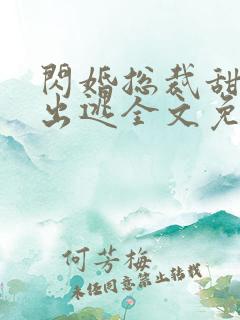 閃婚总裁甜
出逃全文免
何芳梅
未经同意禁止转载